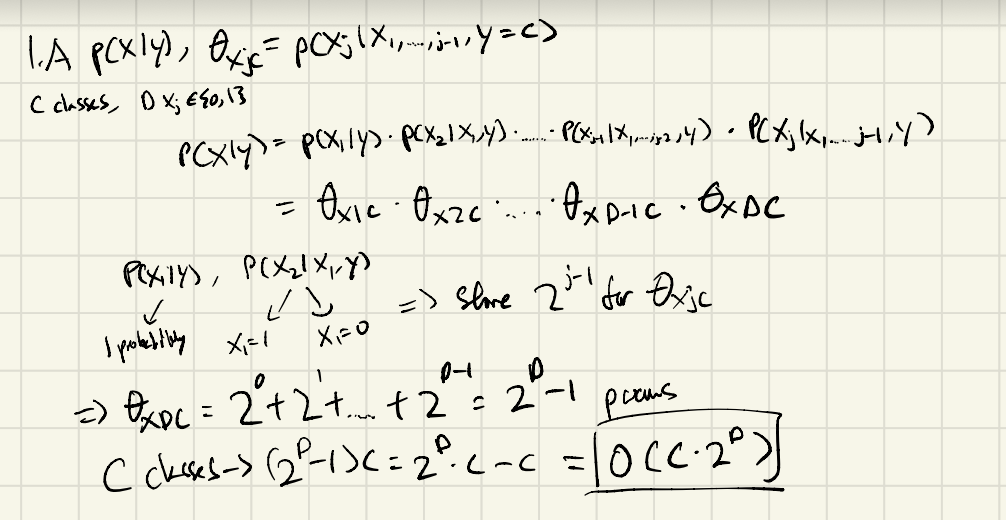 1.A p(x|y), θxjc = p(xj|x1,...,j-1, y=c)
C classes, D xj ∈ {0,1}
p(x|y) = p(x1|y) · p(x2|x1,y) · ..... · p(xj-1|x1,...,j-2,y) · p(xj|x1,...j-1,y)
= θx1c · θx2c · .... · θxD-1c · θxDC
p(x1|y), p(x2|x1,y) => store 2^j-1 for θxjc
1 probability x1=1 x1=0
=> θxDC = 2^0 + 2^1 + .... + 2^D-1 = 2^D - 1 params
C classes -> (2^D-1)C = 2^D · C - C = O(C·2^D)